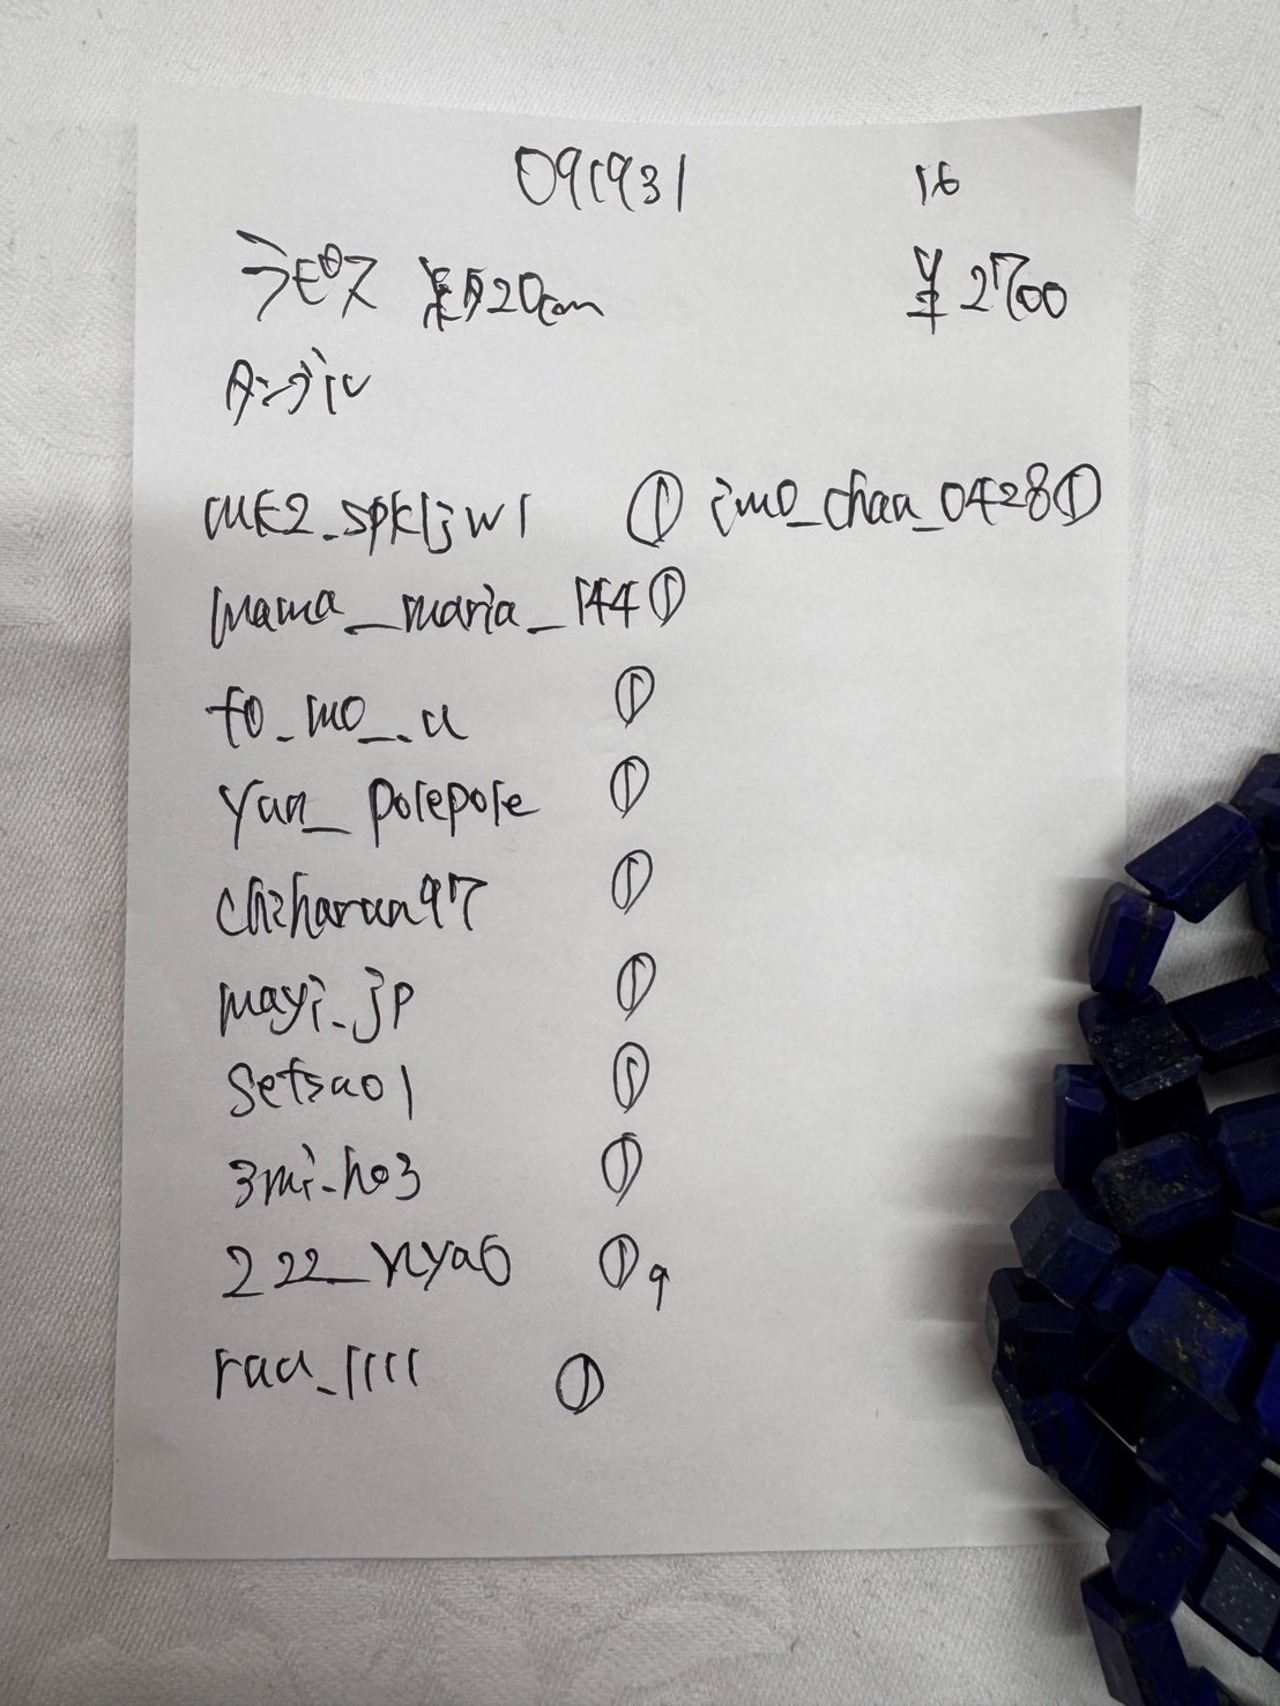 091931 16
ラピス 約20cm ¥2700
タンブル
mk2_spkljw1 ① imo_chan_0428①
mama_maria_144①
to_mo__u ①
yun_polepole ①
chiharun97 ①
mayi_jp ①
setsuo1 ①
3mi_ho3 ①
222_nya6 ①9
rau_1111 ①